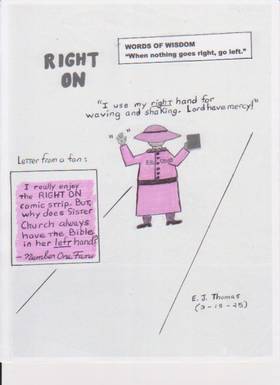 RIGHT
ON
WORDS OF WISDOM
"When nothing goes right, go left."
"I use my right hand for
waving and shaking. Lord have mercy!"
Letter from a fan:
I really enjoy
the RIGHT ON
comic strip. But,
why does Sister
Church always
have the Bible
in her left hand?
- Number One Fan
E. J. Thomas